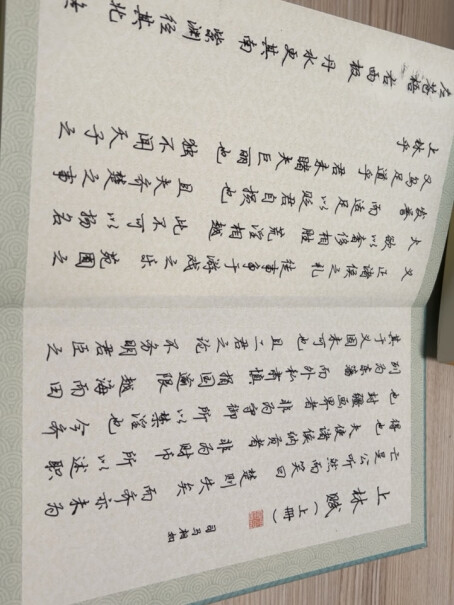 上林赋（上册）
司马相如
亡是公听然而笑曰 楚则失矣 而齐亦未为
得也 夫使诸侯纳贡者 非为财币 所以述职
也 封疆画界者 非为守御 所以禁淫也 今齐
列为东藩 而外私肃慎 捐国逾限 越海而田
其于义固未可也 且二君之论 不务明君臣之
义 正诸侯之礼 徒事争于游戏之乐 苑囿之
大 欲以奢侈相胜 荒淫相越 此不可以扬名
发誉 而适足以贬君自损也 且夫齐楚之事
又乌足道乎 君未睹夫巨丽也 独不闻天子之
上林乎
左苍梧 右西极 丹水更其南 紫渊径其北